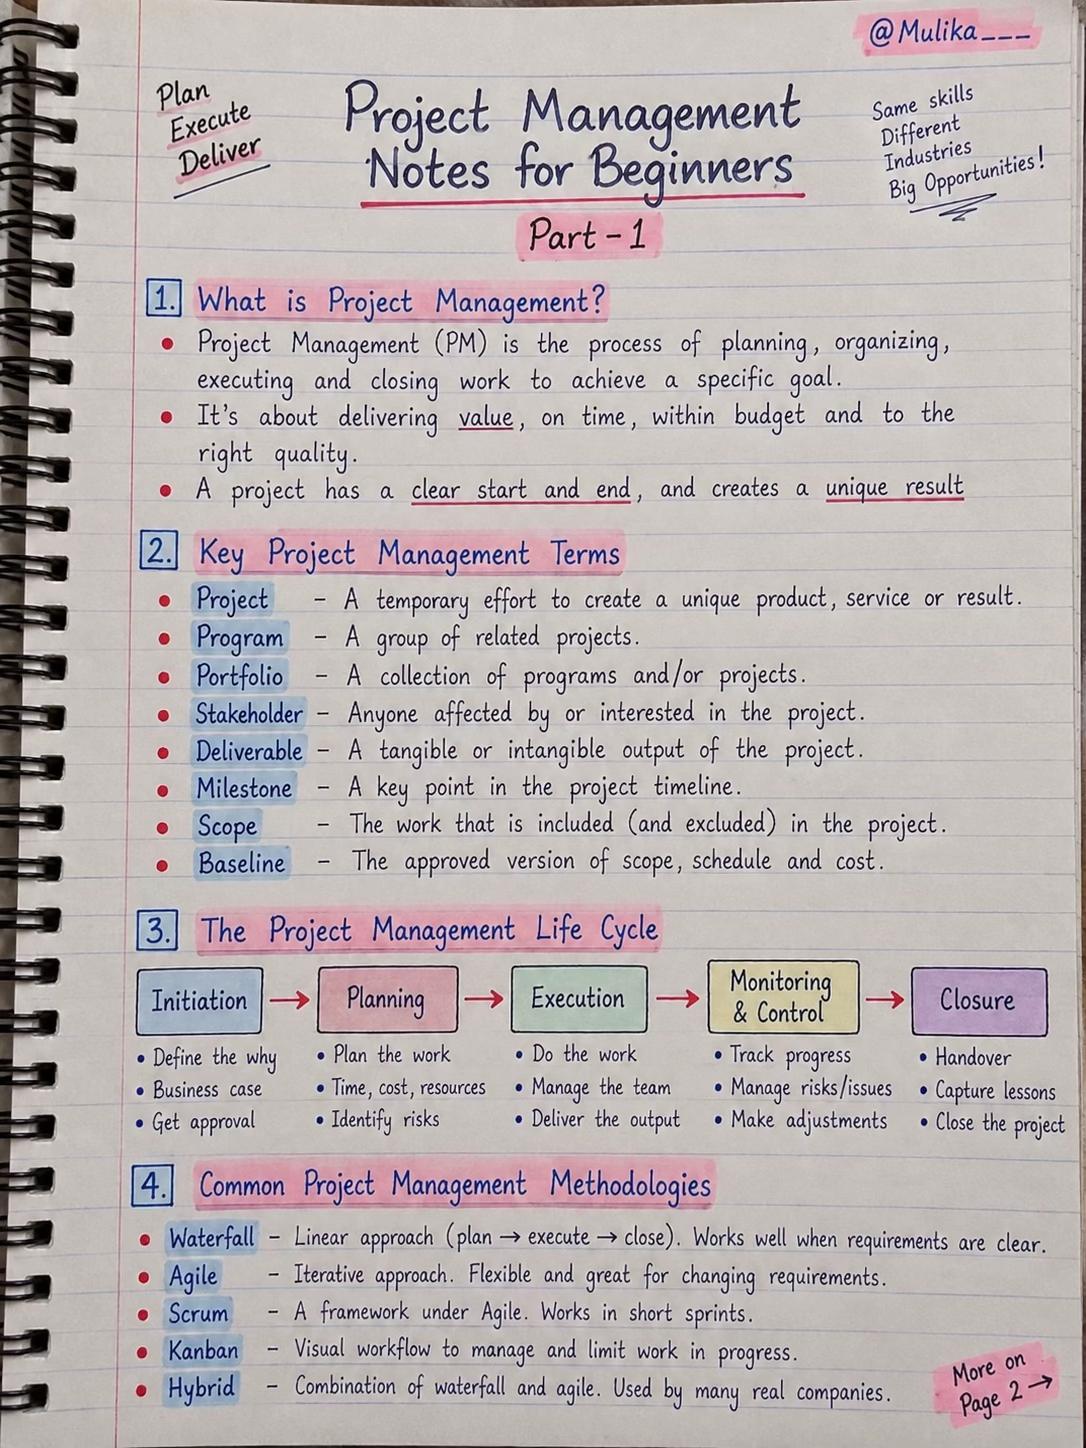 @Mulika___
Plan
Execute
Deliver
Project Management
Notes for Beginners
Part - 1
Same skills
Different
Industries
Big Opportunities!
1. What is Project Management?
• Project Management (PM) is the process of planning, organizing,
executing and closing work to achieve a specific goal.
• It's about delivering value, on time, within budget and to the
right quality.
• A project has a clear start and end, and creates a unique result
2. Key Project Management Terms
• Project - A temporary effort to create a unique product, service or result.
• Program - A group of related projects.
• Portfolio - A collection of programs and/or projects.
• Stakeholder - Anyone affected by or interested in the project.
• Deliverable - A tangible or intangible output of the project.
• Milestone - A key point in the project timeline.
• Scope - The work that is included (and excluded) in the project.
• Baseline - The approved version of scope, schedule and cost.
3. The Project Management Life Cycle
Initiation → Planning → Execution → Monitoring & Control → Closure
• Define the why
• Business case
• Get approval
• Plan the work
• Time, cost, resources
• Identify risks
• Do the work
• Manage the team
• Deliver the output
• Track progress
• Manage risks/issues
• Make adjustments
• Handover
• Capture lessons
• Close the project
4. Common Project Management Methodologies
• Waterfall - Linear approach (plan → execute → close). Works well when requirements are clear.
• Agile - Iterative approach. Flexible and great for changing requirements.
• Scrum - A framework under Agile. Works in short sprints.
• Kanban - Visual workflow to manage and limit work in progress.
• Hybrid - Combination of waterfall and agile. Used by many real companies.
More on
Page 2 →